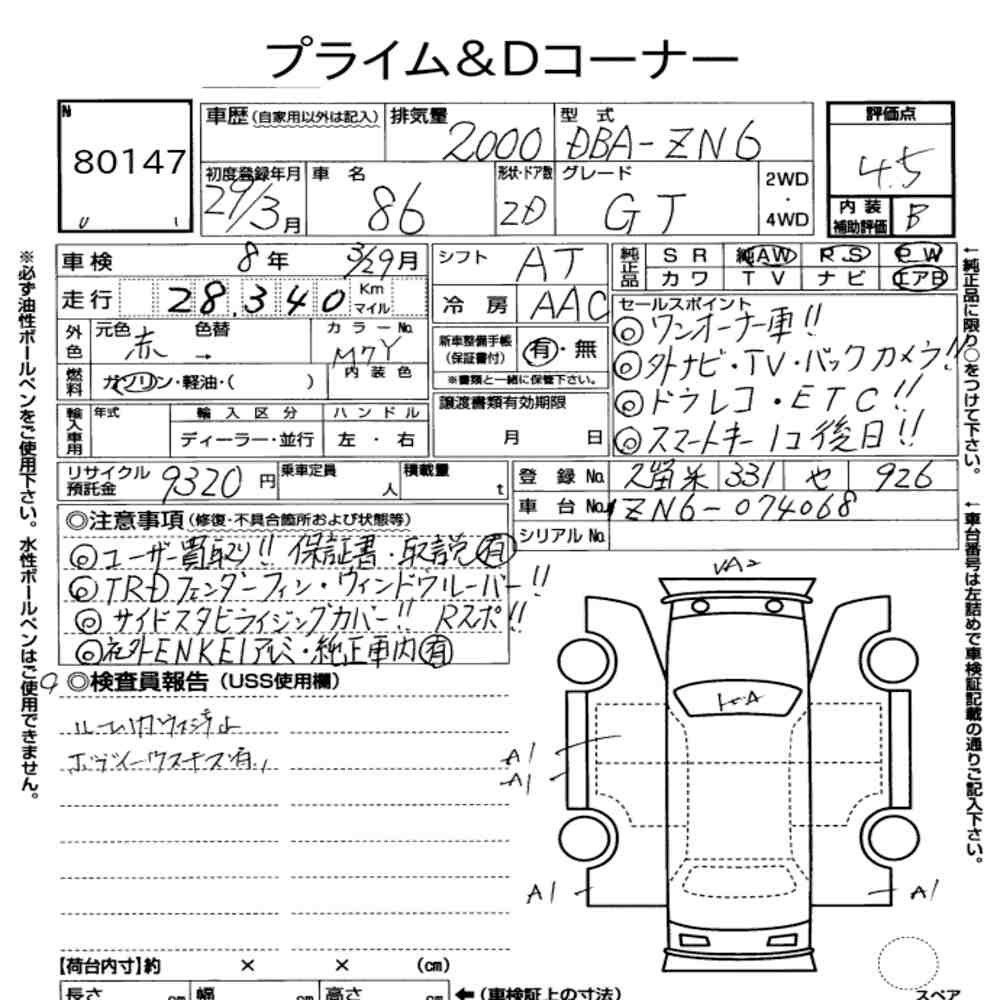 プライム&Dコーナー
N
80147
車歴 (自家用以外は記入)
排気量 2000
型式 DBA-ZN6
評価点 4.5
初度登録年月 29/3月
車名 86
形状・ドア数 2D
グレード GT
2WD
・
4WD
内装補助評価 B
車検 8年 3/29月
シフト AT
純正品 SR 純AW RS PW
カワ TV ナビ エアB
走行 28,340 Km マイル
冷房 AAC
セールスポイント
◎ワンオーナー車!!
◎外ナビ・TV・バックカメラ!!
◎ドラレコ・ETC!!
◎スマートキー1コ後日!!
外色 元色 赤 色替 →
カラーNo. M7Y
内装色
新車整備手帳(保証書付) 有・無
※書類と一緒に保管下さい。
燃料 ガソリン・軽油・( )
譲渡書類有効期限
月 日
輸入車用 年式 輸入区分 ハンドル
ディーラー・並行 左・右
リサイクル預託金 9320円
乗車定員 人
積載量 t
登録No. 久留米 331 や 926
車台No. ZN6-074068
シリアルNo.
◎注意事項 (修復・不具合箇所および状態等)
◎ユーザー買取り!! 保証書・取説有
◎TRDフェンダーフィン・ウィンドウルーバー!!
◎サイドスタビライジングカバー!! Rスポ!!
◎社外ENKEIアルミ・純正車内有
◎検査員報告 (USS使用欄)
ボディーウスキズ有
VA2
A1
A1
A1
A1
【荷台内寸】約 × × (cm)
長さ cm 幅 cm 高さ cm
←(車検証上の寸法)
スペア
※必ず油性ボールペンをご使用下さい。水性ボールペンはご使用できません。
←純正品に限り○をつけて下さい。
←車台番号は左詰めで車検証記載の通りご記入下さい。